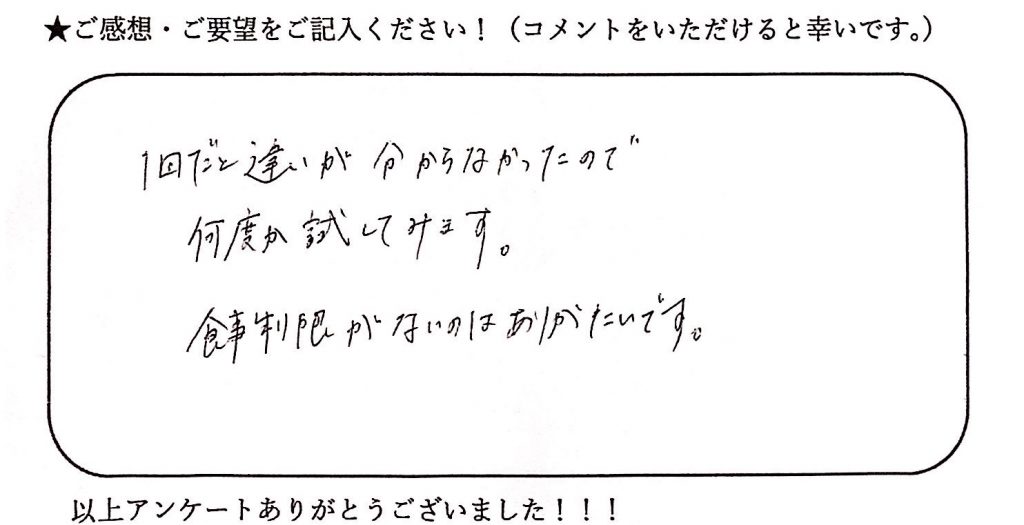 ★ご感想・ご要望をご記入ください！（コメントをいただけると幸いです。）
1回だと違いが分からなかったので
何度か試してみます。
食事制限がないのはありがたいです。
以上アンケートありがとうございました！！！